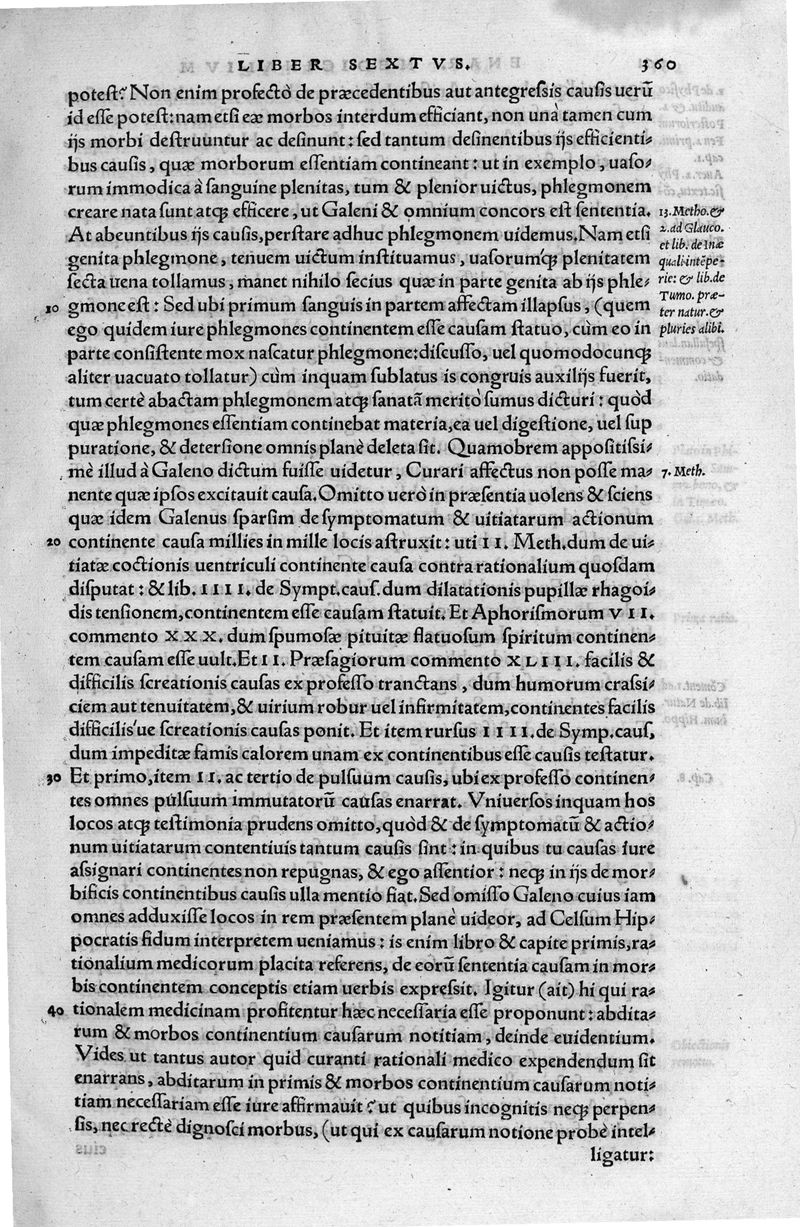 LIBER SEXTVS. 360
potest? Non enim profectò de præcedentibus aut antegreſsis cauſis uerũ
id eſſe poteſt: nam etſi eæ morbos interdum efficiant, non unà tamen cum
ijs morbi deſtruuntur ac deſinunt: ſed tantum deſinentibus ijs efficienti-
bus cauſis, quæ morborum eſſentiam contineant: ut in exemplo, uaſo-
rum immodica à ſanguine plenitas, tum & plenior uictus, phlegmonem
creare nata ſunt atq; efficere, ut Galeni & omnium concors eſt ſententia.
At abeuntibus ijs cauſis, perſtare adhuc phlegmonem uidemus. Nam etſi
genita phlegmone, tenuem uictum inſtituamus, uaſorumq; plenitatem
ſecta uena tollamus, manet nihilo ſecius quæ in parte genita ab ijs phle-
10 gmone eſt: Sed ubi primum ſanguis in partem affectam illapſus, (quem
ego quidem iure phlegmones continentem eſſe cauſam ſtatuo, cùm eo in
parte conſiſtente mox naſcatur phlegmone: diſcuſſo, uel quomodocunq;
aliter uacuato tollatur) cùm inquam ſublatus is congruis auxilijs fuerit,
tum certè abactam phlegmonem atq; ſanatã meritò ſumus dicturi: quòd
quæ phlegmones eſſentiam continebat materia, ea uel digeſtione, uel ſup
puratione, & deterſione omnis planè deleta ſit. Quamobrem appoſitiſsi-
mè illud à Galeno dictum fuiſſe uidetur, Curari affectus non poſſe ma-
nente quæ ipſos excitauit cauſa. Omitto uerò in præſentia uolens & ſciens
quæ idem Galenus ſparſim de ſymptomatum & uitiatarum actionum
20 continente cauſa millies in mille locis aſtruxit: uti II. Meth. dum de ui-
tiatæ coctionis uentriculi continente cauſa contra rationalium quoſdam
diſputat: & lib. IIII. de Sympt. cauſ. dum dilatationis pupillæ rhagoi-
dis tenſionem, continentem eſſe cauſam ſtatuit. Et Aphoriſmorum VII.
commento XXX. dum ſpumoſæ pituitæ flatuoſum ſpiritum continen-
tem cauſam eſſe uult. Et II. Præſagiorum commento XLIII. facilis &
difficilis ſcreationis cauſas ex profeſſo tranctans, dum humorum craſsi-
ciem aut tenuitatem, & uirium robur uel infirmitatem, continentes facilis
difficilis'ue ſcreationis cauſas ponit. Et item rurſus IIII. de Symp. cauſ.
dum impeditæ famis calorem unam ex continentibus eſſe cauſis teſtatur.
30 Et primo, item II. ac tertio de pulſuum cauſis, ubi ex profeſſo continen-
tes omnes pulſuum immutatorũ cauſas enarrat. Vniuerſos inquam hos
locos atq; teſtimonia prudens omitto, quòd & de ſymptomatũ & actio-
num uitiatarum contentiuis tantum cauſis ſint: in quibus tu cauſas iure
aſsignari continentes non repugnas, & ego aſſentior: neq; in ijs de mor-
bificis continentibus cauſis ulla mentio fiat. Sed omiſſo Galeno cuius iam
omnes adduxiſſe locos in rem præſentem planè uideor, ad Celſum Hip-
pocratis fidum interpretem ueniamus: is enim libro & capite primis, ra-
tionalium medicorum placita referens, de eorũ ſententia cauſam in mor-
bis continentem conceptis etiam uerbis expreſsit. Igitur (ait) hi qui ra-
40 tionalem medicinam profitentur hæc neceſſaria eſſe proponunt: abdita-
rum & morbos continentium cauſarum notitiam, deinde euidentium.
Vides ut tantus autor quid curanti rationali medico expendendum ſit
enarrans, abditarum in primis & morbos continentium cauſarum noti-
tiam neceſſariam eſſe iure affirmauit? ut quibus incognitis neq; perpen-
ſis, nec rectè dignoſci morbus, (ut qui ex cauſarum notione probè intel-
ligatur:
13. Metho. &
2. ad Glauco.
et lib. de inæ
quali intẽpe-
rie: & lib. de
Tumo. præ-
ter natur. &
pluries alibi.
7. Meth.